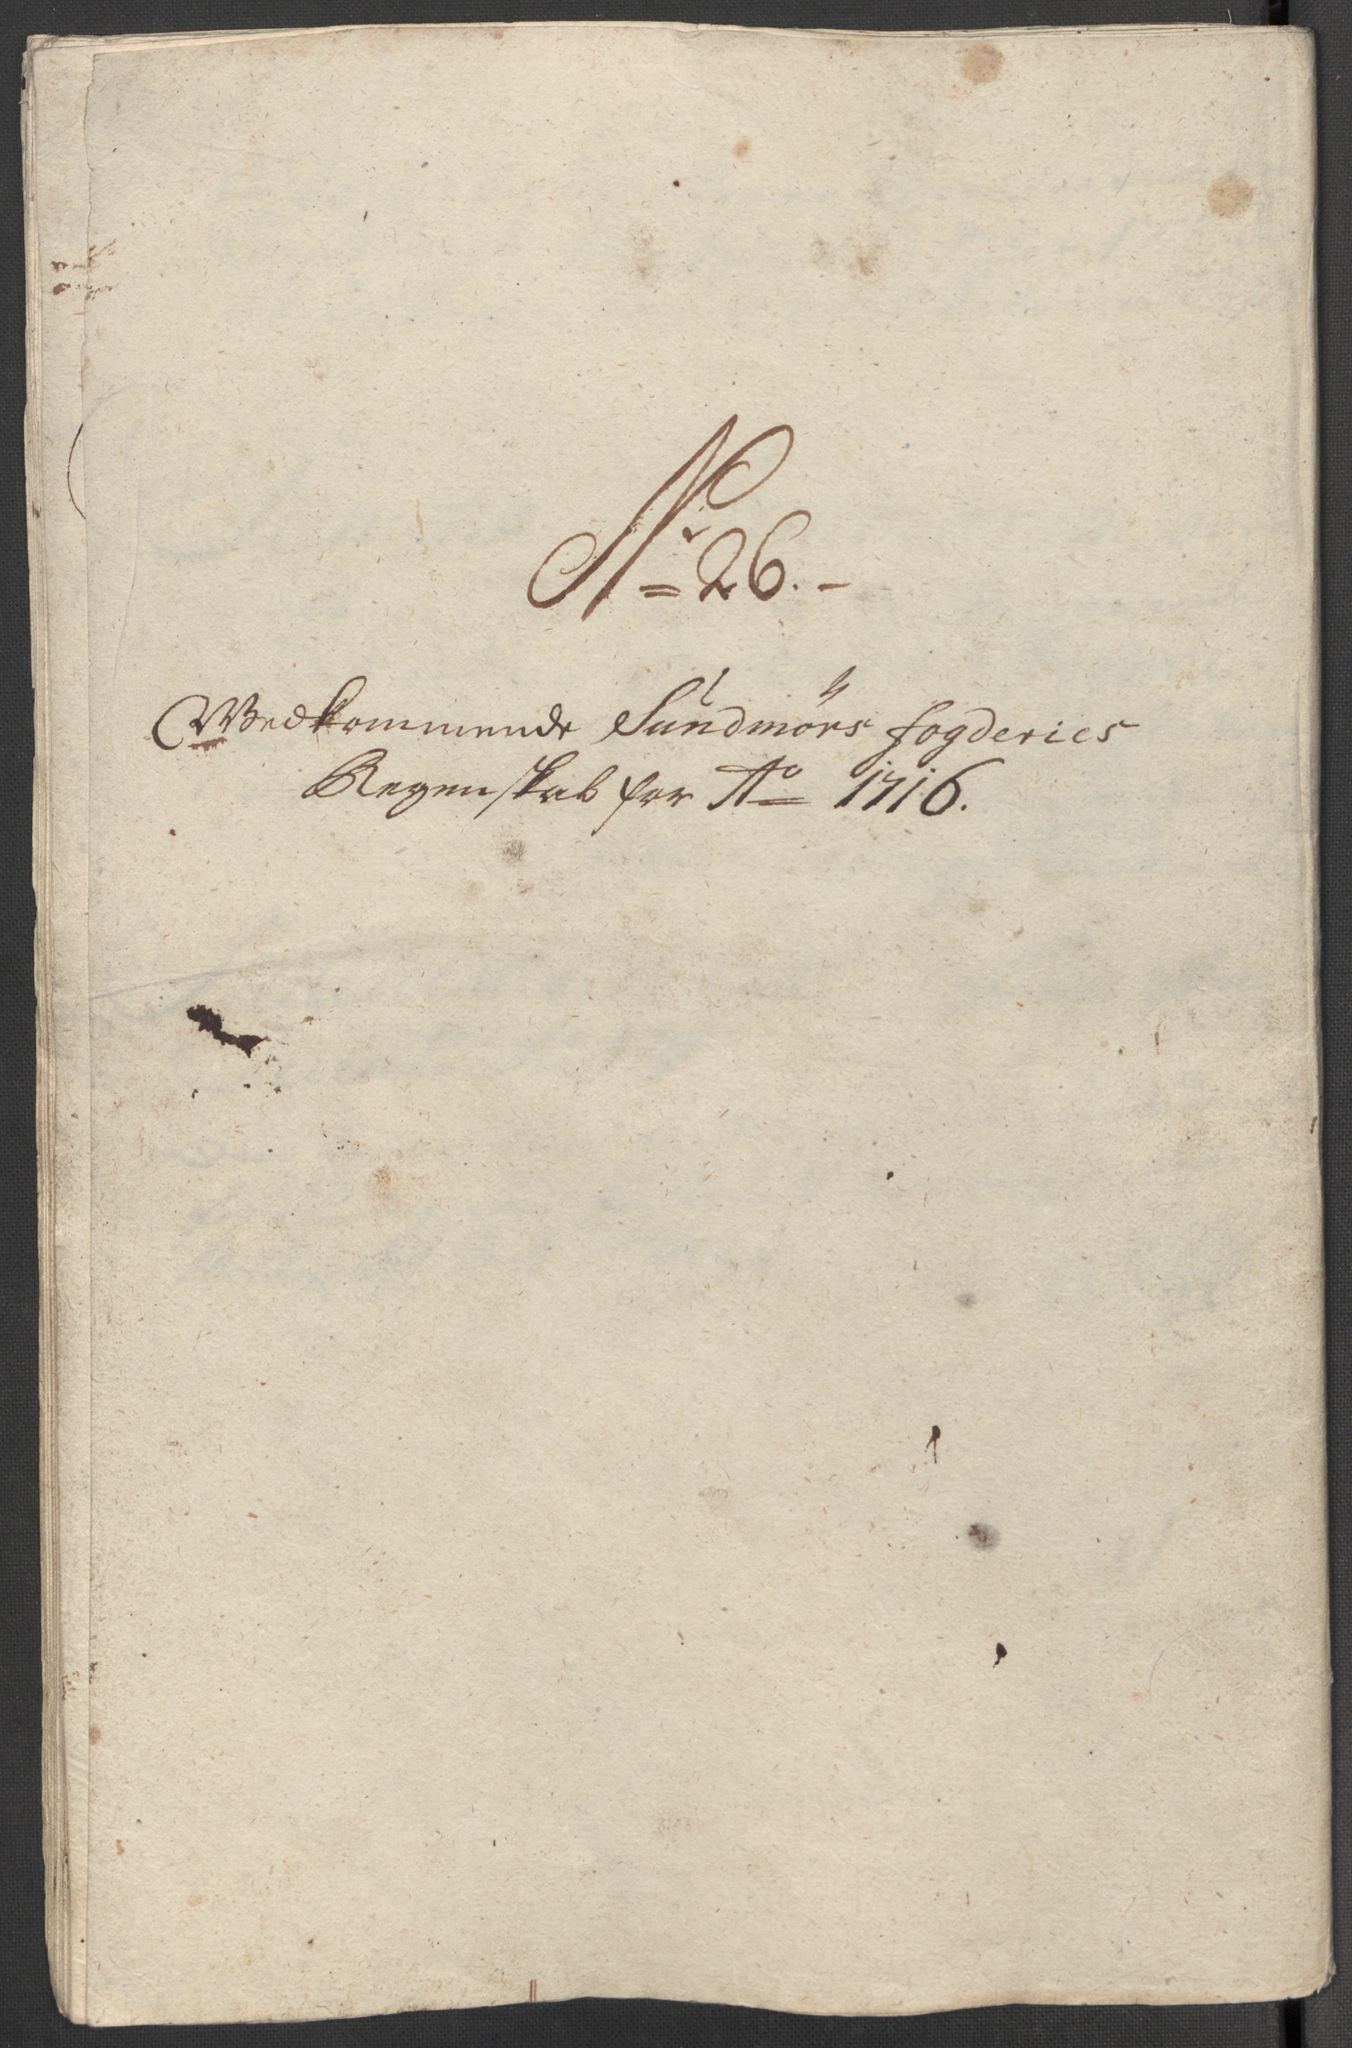 No 26.
Wedkommende Sundmörs fogderies
Regenskab for Ao 1716.